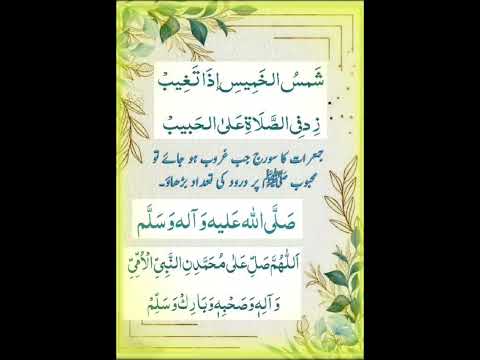 شَمسُ الخَمِيسِ إِذَا تَغِيبْ
زِد فِي الصَّلَاةِ عَلىٰ الحَبِيبْ
جمعرات کا سورج جب غروب ہو جائے تو
محبوب ﷺ پر درود کی تعداد بڑھاؤ۔
صَلَّی اللّٰہ عَلَیه وَآله وَسَلَّم
اَللّٰهُمَّ صَلِّ عَلٰی مُحَمَّدِنِ النَّبِیِّ الْاُمِّیِّ
وَآلِهٖ وَصَحْبِهٖ وَبَارِكْ وَسَلِّمْ